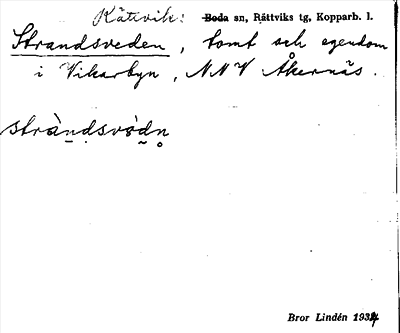 Rättvik: Boda sn, Rättviks tg, Kopparb. l.
Strandsveden, tomt och egendom
i Vikarbyn, NNV Åkernäs.
stràndsvòdn
Bror Lindén 1934